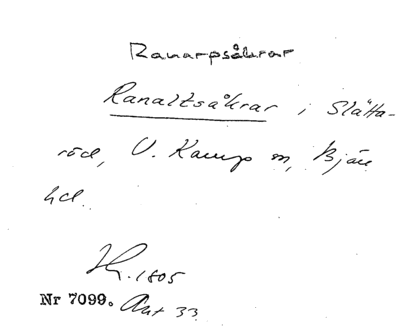 Ranarpsåkrar
Ranaltsåkrar i Slätta-
röd, V. Karup sn, Bjäre
hd.
Hr. 1805
Nr 7099. Akt 33